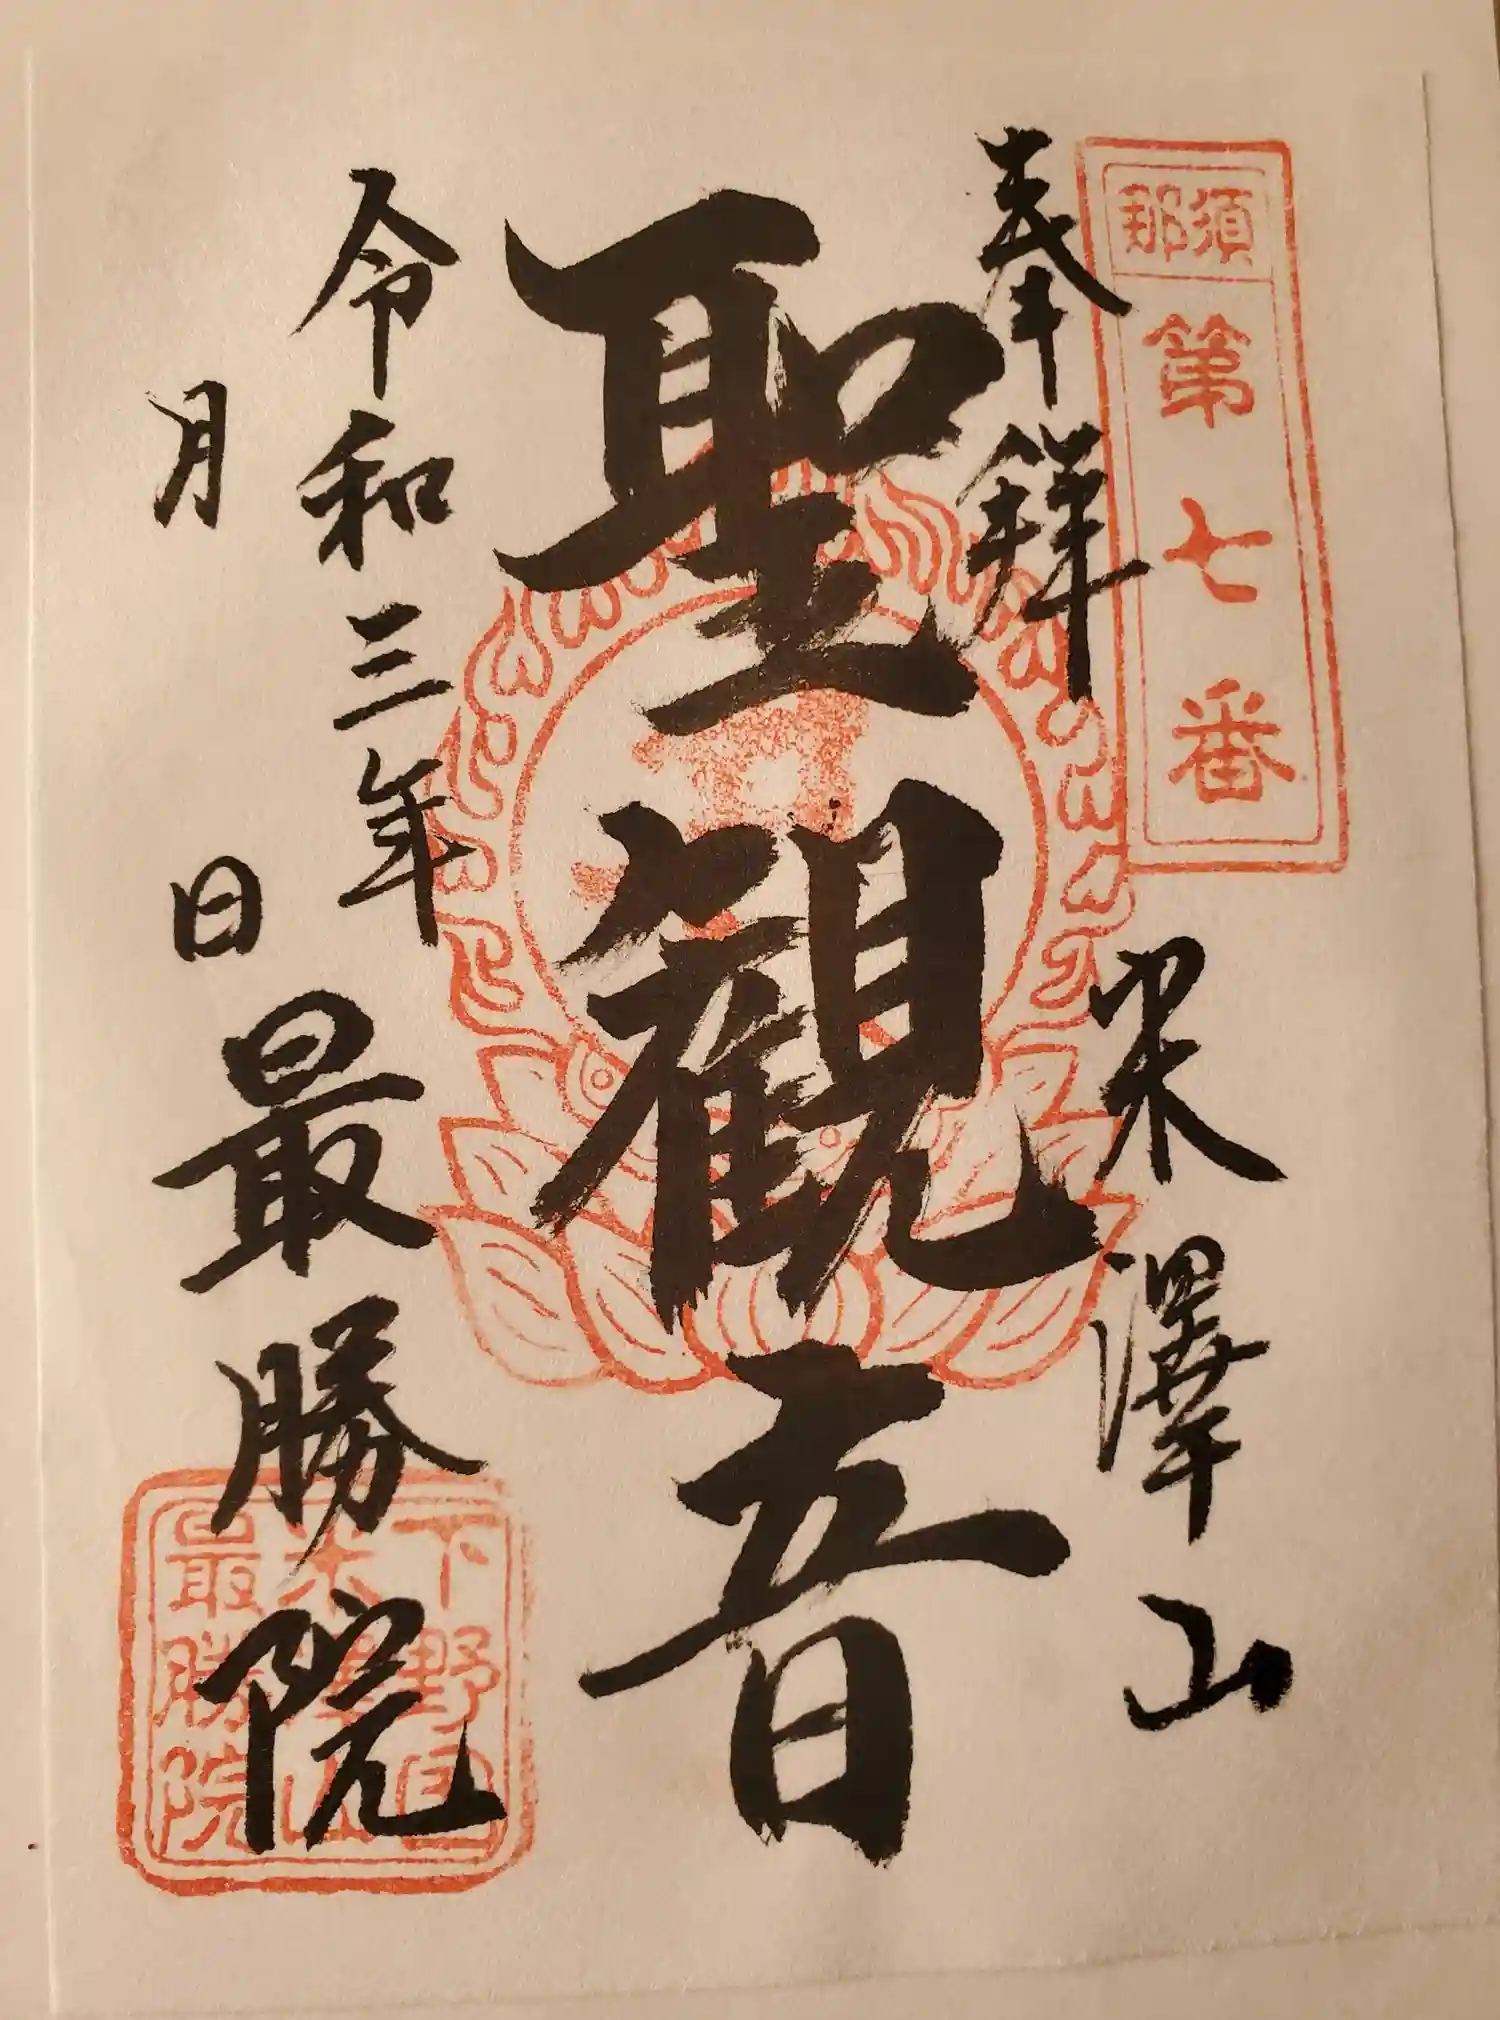 那須
第七番
奉拜
米澤山
聖観音
令和三年
月 日
最勝院
下野国
米澤山
最勝院